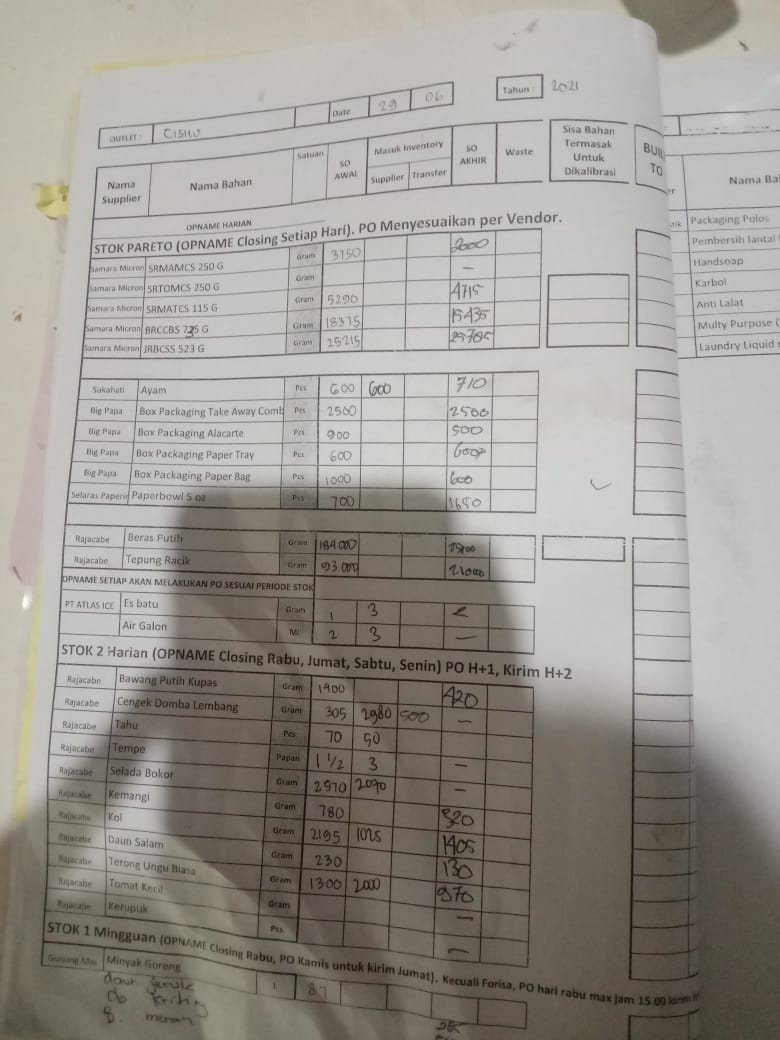 OUTLET : Cisitu Date 29 06 Tahun : 2021
Nama Supplier Nama Bahan Satuan SO AWAL Masuk Inventory Supplier Transfer SO AKHIR Waste Sisa Bahan Termasak Untuk Dikalibrasi TO
OPNAME HARIAN
STOK PARETO (OPNAME Closing Setiap Hari). PO Menyesuaikan per Vendor.
Samara Micron SRMAMCS 250 G Gram 3150 2000
Samara Micron SRTOMCS 250 G Gram –
Samara Micron SRMATCS 115 G Gram 5290 4715
Samara Micron BRCCBS G Gram 18375 15435
Samara Micron JRBCSS 523 G Gram 25215
Sukahati Ayam Pcs 600 600 710
Big Papa Box Packaging Take Away Comb Pcs 2500 2500
Big Papa Box Packaging Alacarte Pcs 900 500
Big Papa Box Packaging Paper Tray Pcs 600
Big Papa Box Packaging Paper Bag Pcs 1000 600
Selaras Paperbowl 5 oz Pcs 700 1650
Rajacabe Beras Putih Gram 184000
Rajacabe Tepung Racik Gram 93000 21000
OPNAME SETIAP AKAN MELAKUKAN PO SESUAI PERIODE STOK
PT ATLAS ICE Es batu Gram 1 3
Air Galon Ml 2 3 –
STOK 2 Harian (OPNAME Closing Rabu, Jumat, Sabtu, Senin) PO H+1, Kirim H+2
Rajacabe Bawang Putih Kupas Gram 1400 420
Rajacabe Cengek Domba Lembang Gram 305 2980 500 –
Rajacabe Tahu Pcs 70 50
Rajacabe Tempe Papan 1 1/2 3 –
Rajacabe Selada Bokor Gram 2570 2090 –
Rajacabe Kemangi Gram 780 320
Rajacabe Kol Gram 2195 1025 1405
Rajacabe Daun Salam Gram 230 130
Rajacabe Terong Ungu Biasa Gram 1300 2000 970
Rajacabe Tomat Kecil Gram –
Rajacabe Kerupuk Pcs –
STOK 1 Mingguan (OPNAME Closing Rabu, PO Kamis untuk kirim Jumat). Kecuali Forisa, PO hari rabu max jam 15.00 kirim
Minyak Goreng 1 87
daun jeruk
B. merah
Nama Ba
Packaging Polos
Pembersih lantai
Handsoap
Karbol
Anti Lalat
Multy Purpose (
Laundry Liquid